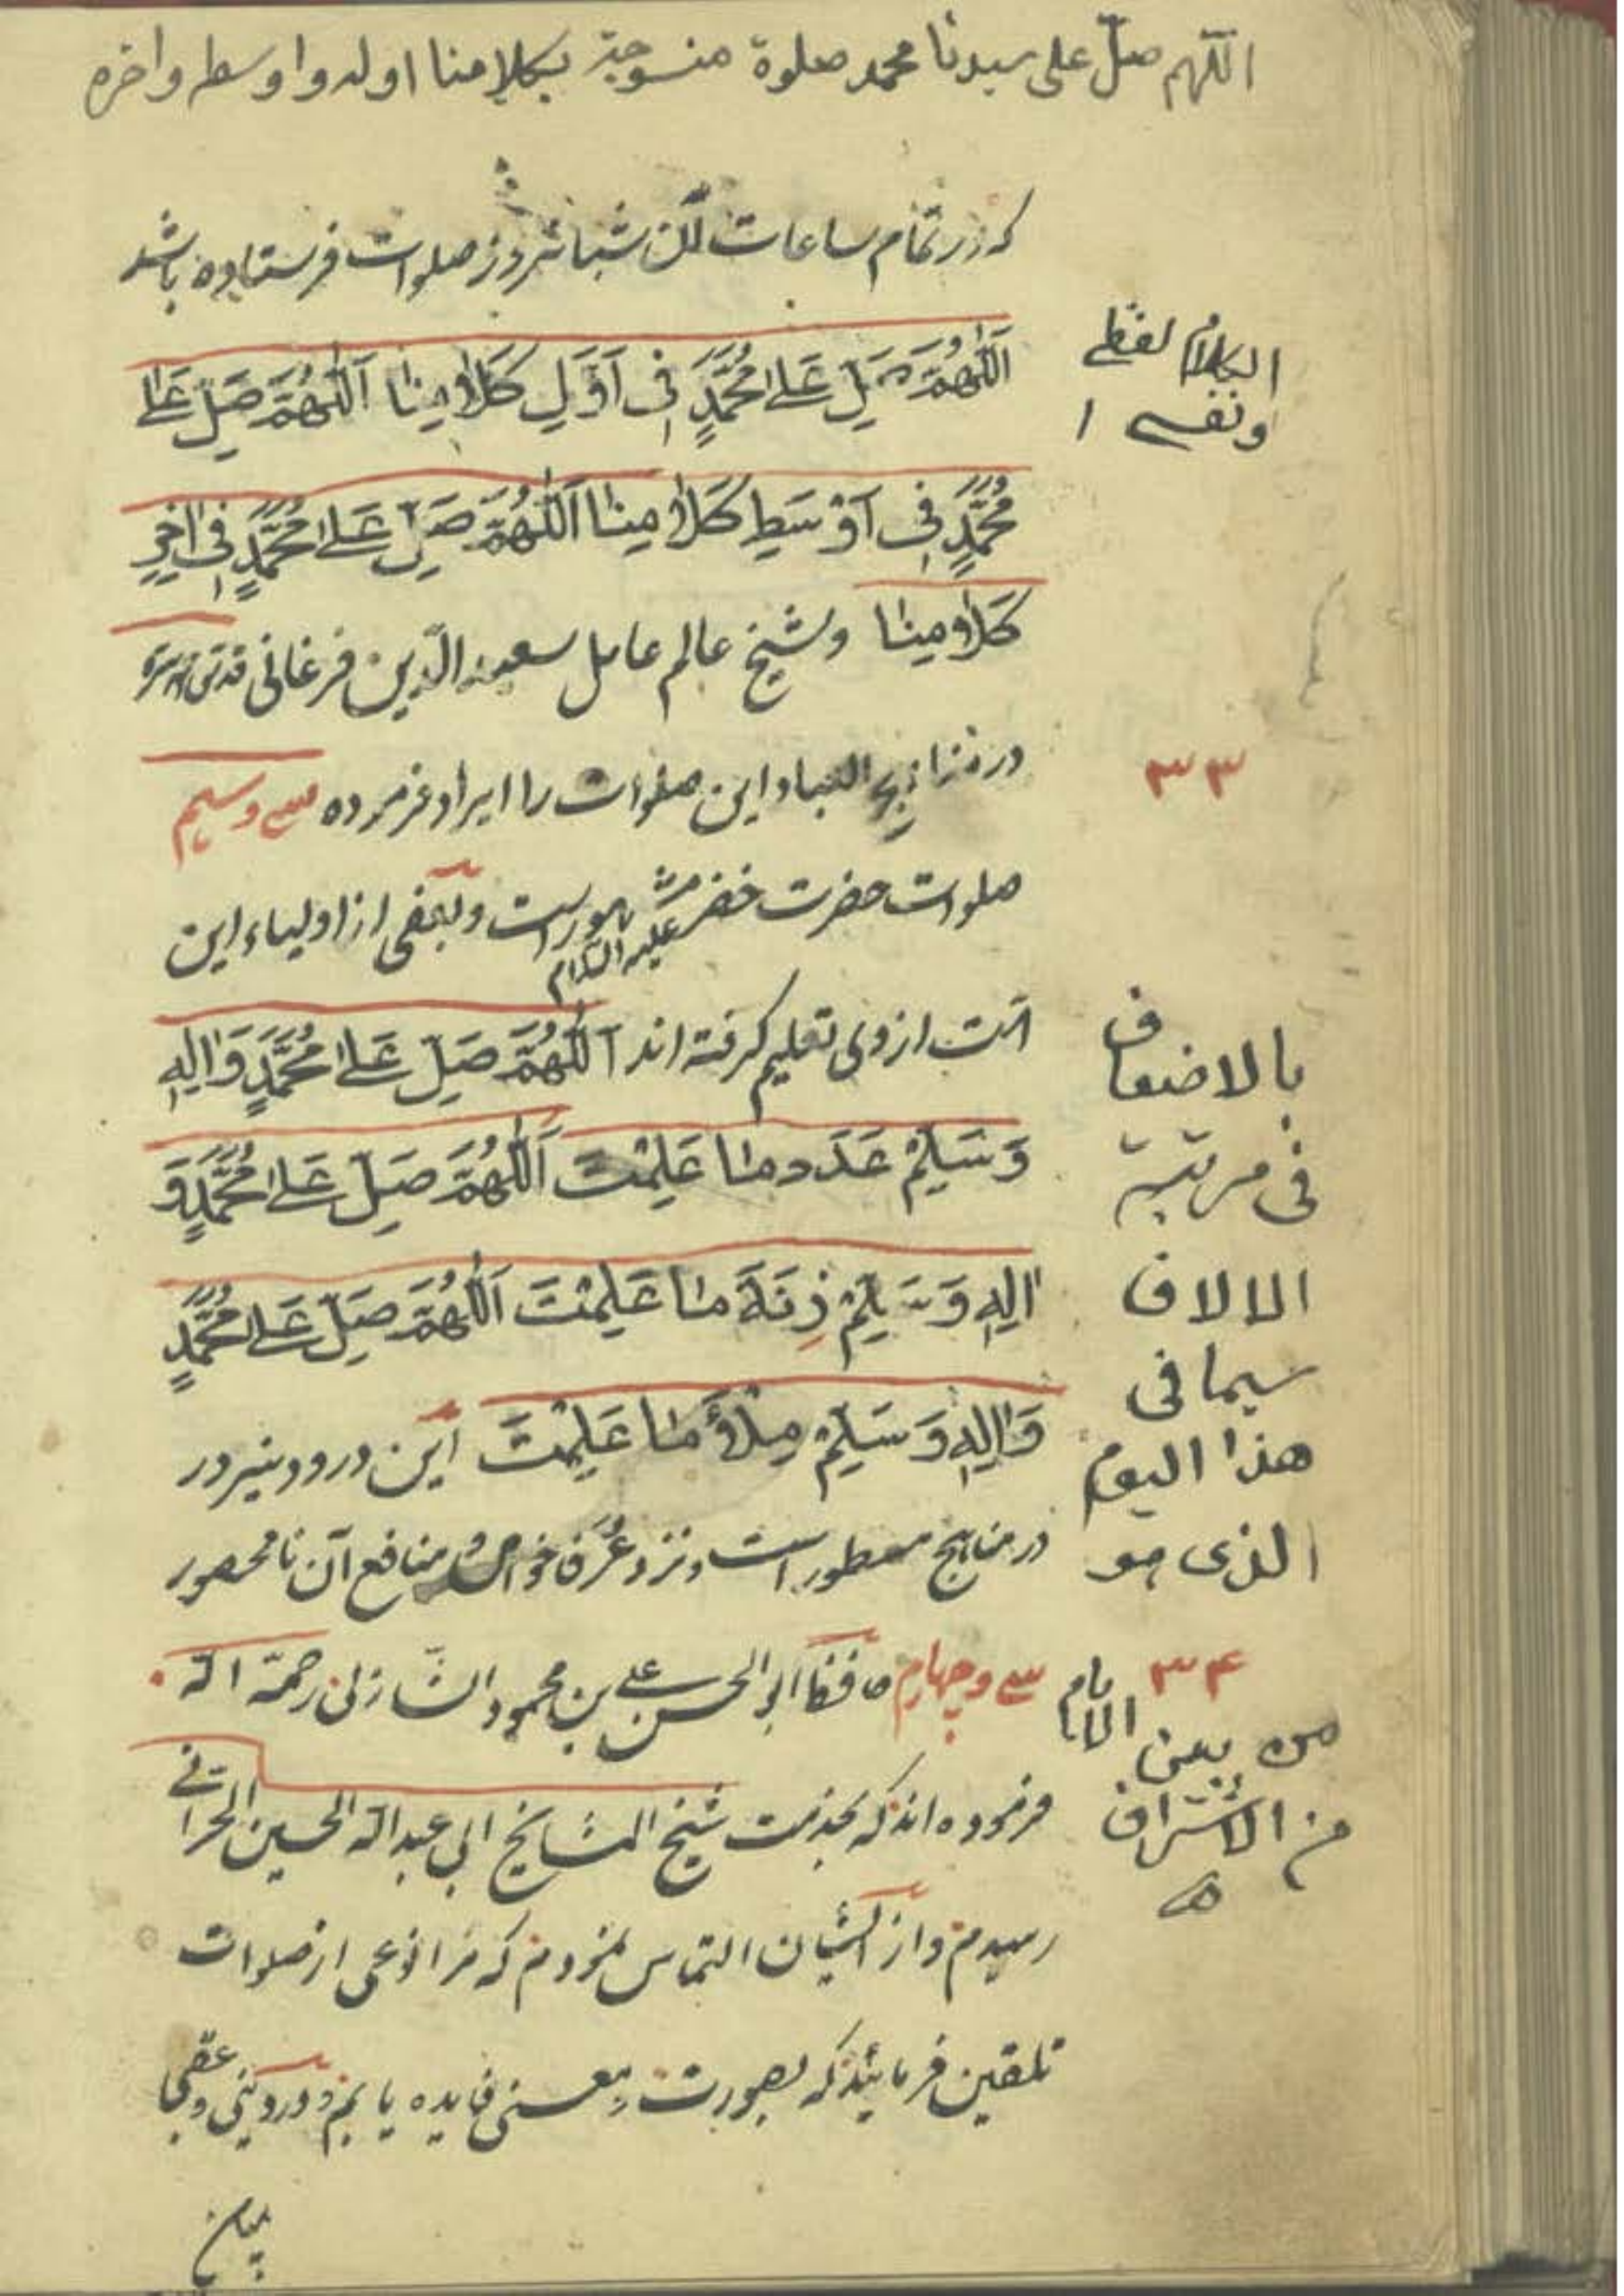 اللهم صل على سيدنا محمد صلوة منسوجة بكلامنا اوله واوسطه واخره
که در تمام ساعات آن شبانروز صلوات فرستاده باشد
اَللّٰهُمَّ صَلِّ عَلٰى مُحَمَّدٍ فِى اَوَّلِ كَلَامِنَا اَللّٰهُمَّ صَلِّ عَلٰى
مُحَمَّدٍ فِى اَوْسَطِ كَلَامِنَا اَللّٰهُمَّ صَلِّ عَلٰى مُحَمَّدٍ فِى اٰخِرِ
كَلَامِنَا وشیخ عالم عامل سعید الدّین فرغانی قدّس سرّه
در مناهج العباد این صلوات را ایراد فرموده سی وسیم
صلوات حضرت خضر علیه السلام است وبعضی از اولیاء این
امّت از وی تعلیم گرفته اند اَللّٰهُمَّ صَلِّ عَلٰى مُحَمَّدٍ وَاٰلِهِ
وَسَلِّمْ عَدَدَ مَا عَلِمْتَ اَللّٰهُمَّ صَلِّ عَلٰى مُحَمَّدٍ وَ
اٰلِهِ وَسَلِّمْ زِنَةَ مَا عَلِمْتَ اَللّٰهُمَّ صَلِّ عَلٰى مُحَمَّدٍ
وَاٰلِهِ وَسَلِّمْ مِلْأَ مَا عَلِمْتَ این درود نیز در
در مناهج مسطور است ونزد عُرَفا خواص و منافع آن نامحصور
سی وچهارم ابو الحسن علی بن محمود الشاذلی رحمة الله
فرموده اند که بخدمت شیخ المشایخ ابی عبد الله الحسین الحرانی
رسیدم و از ایشان التماس نمودم که مرا نوعی از صلوات
تلقین فرمایند که بصورت ومعنی فایده یابم ودر دنیی وعقبی
بیان
الكلام لفظى
ونفسى ا
٣٣
بالاضعاف
فى مرتبة
الالاف
سيما فى
هذا اليوم
الذى هو
٣۴
من بين الايام
من الاشراف